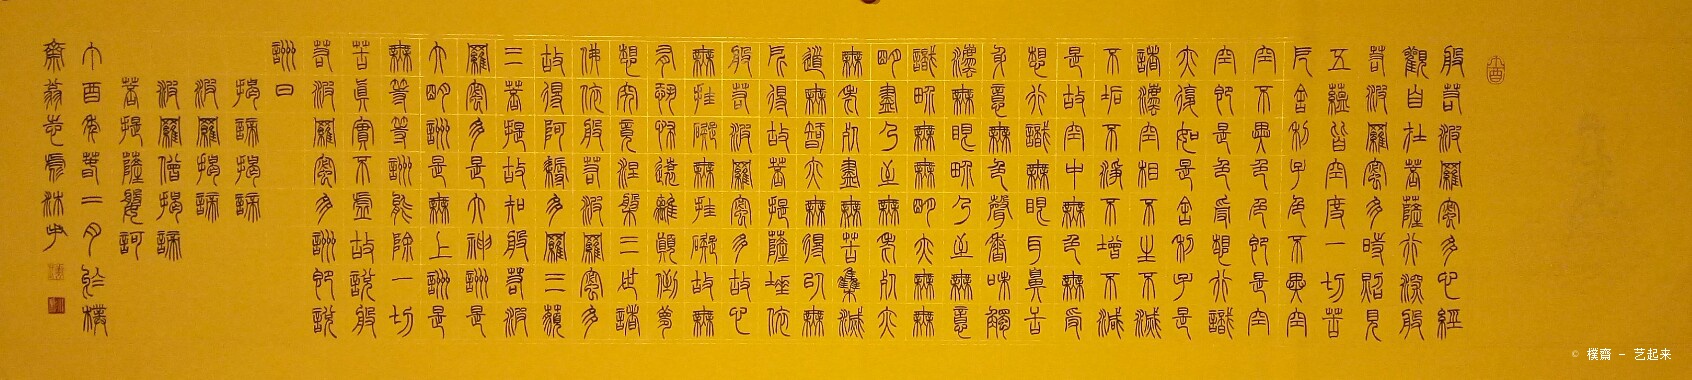 丁酉
般若波羅蜜多心經
觀自在菩薩行深般
若波羅蜜多時照見
五蘊皆空度一切苦
厄舍利子色不異空
空不異色色即是空
空即是色受想行識
亦復如是舍利子是
諸灋空相不生不滅
不垢不淨不增不減
是故空中無色無受
想行識無眼耳鼻舌
身意無色聲香味觸
灋無眼界乃至無意
識界無無明亦無無
明盡乃至無老死亦
無老死盡無苦集滅
道無智亦無得以無
所得故菩提薩埵依
般若波羅蜜多故心
無罣礙無罣礙故無
有恐怖遠離顛倒夢
想究竟涅槃三世諸
佛依般若波羅蜜多
故得阿耨多羅三藐
三菩提故知般若波
羅蜜多是大神詶是
大明詶是無上詶是
無等等詶能除一切
苦真實不虛故說般
若波羅蜜多詶即說
詶曰
揭諦揭諦
波羅揭諦
波羅僧揭諦
菩提薩婆訶
丁酉年春二月於樸
齋翁志沐手
© 樸齋 - 艺起来